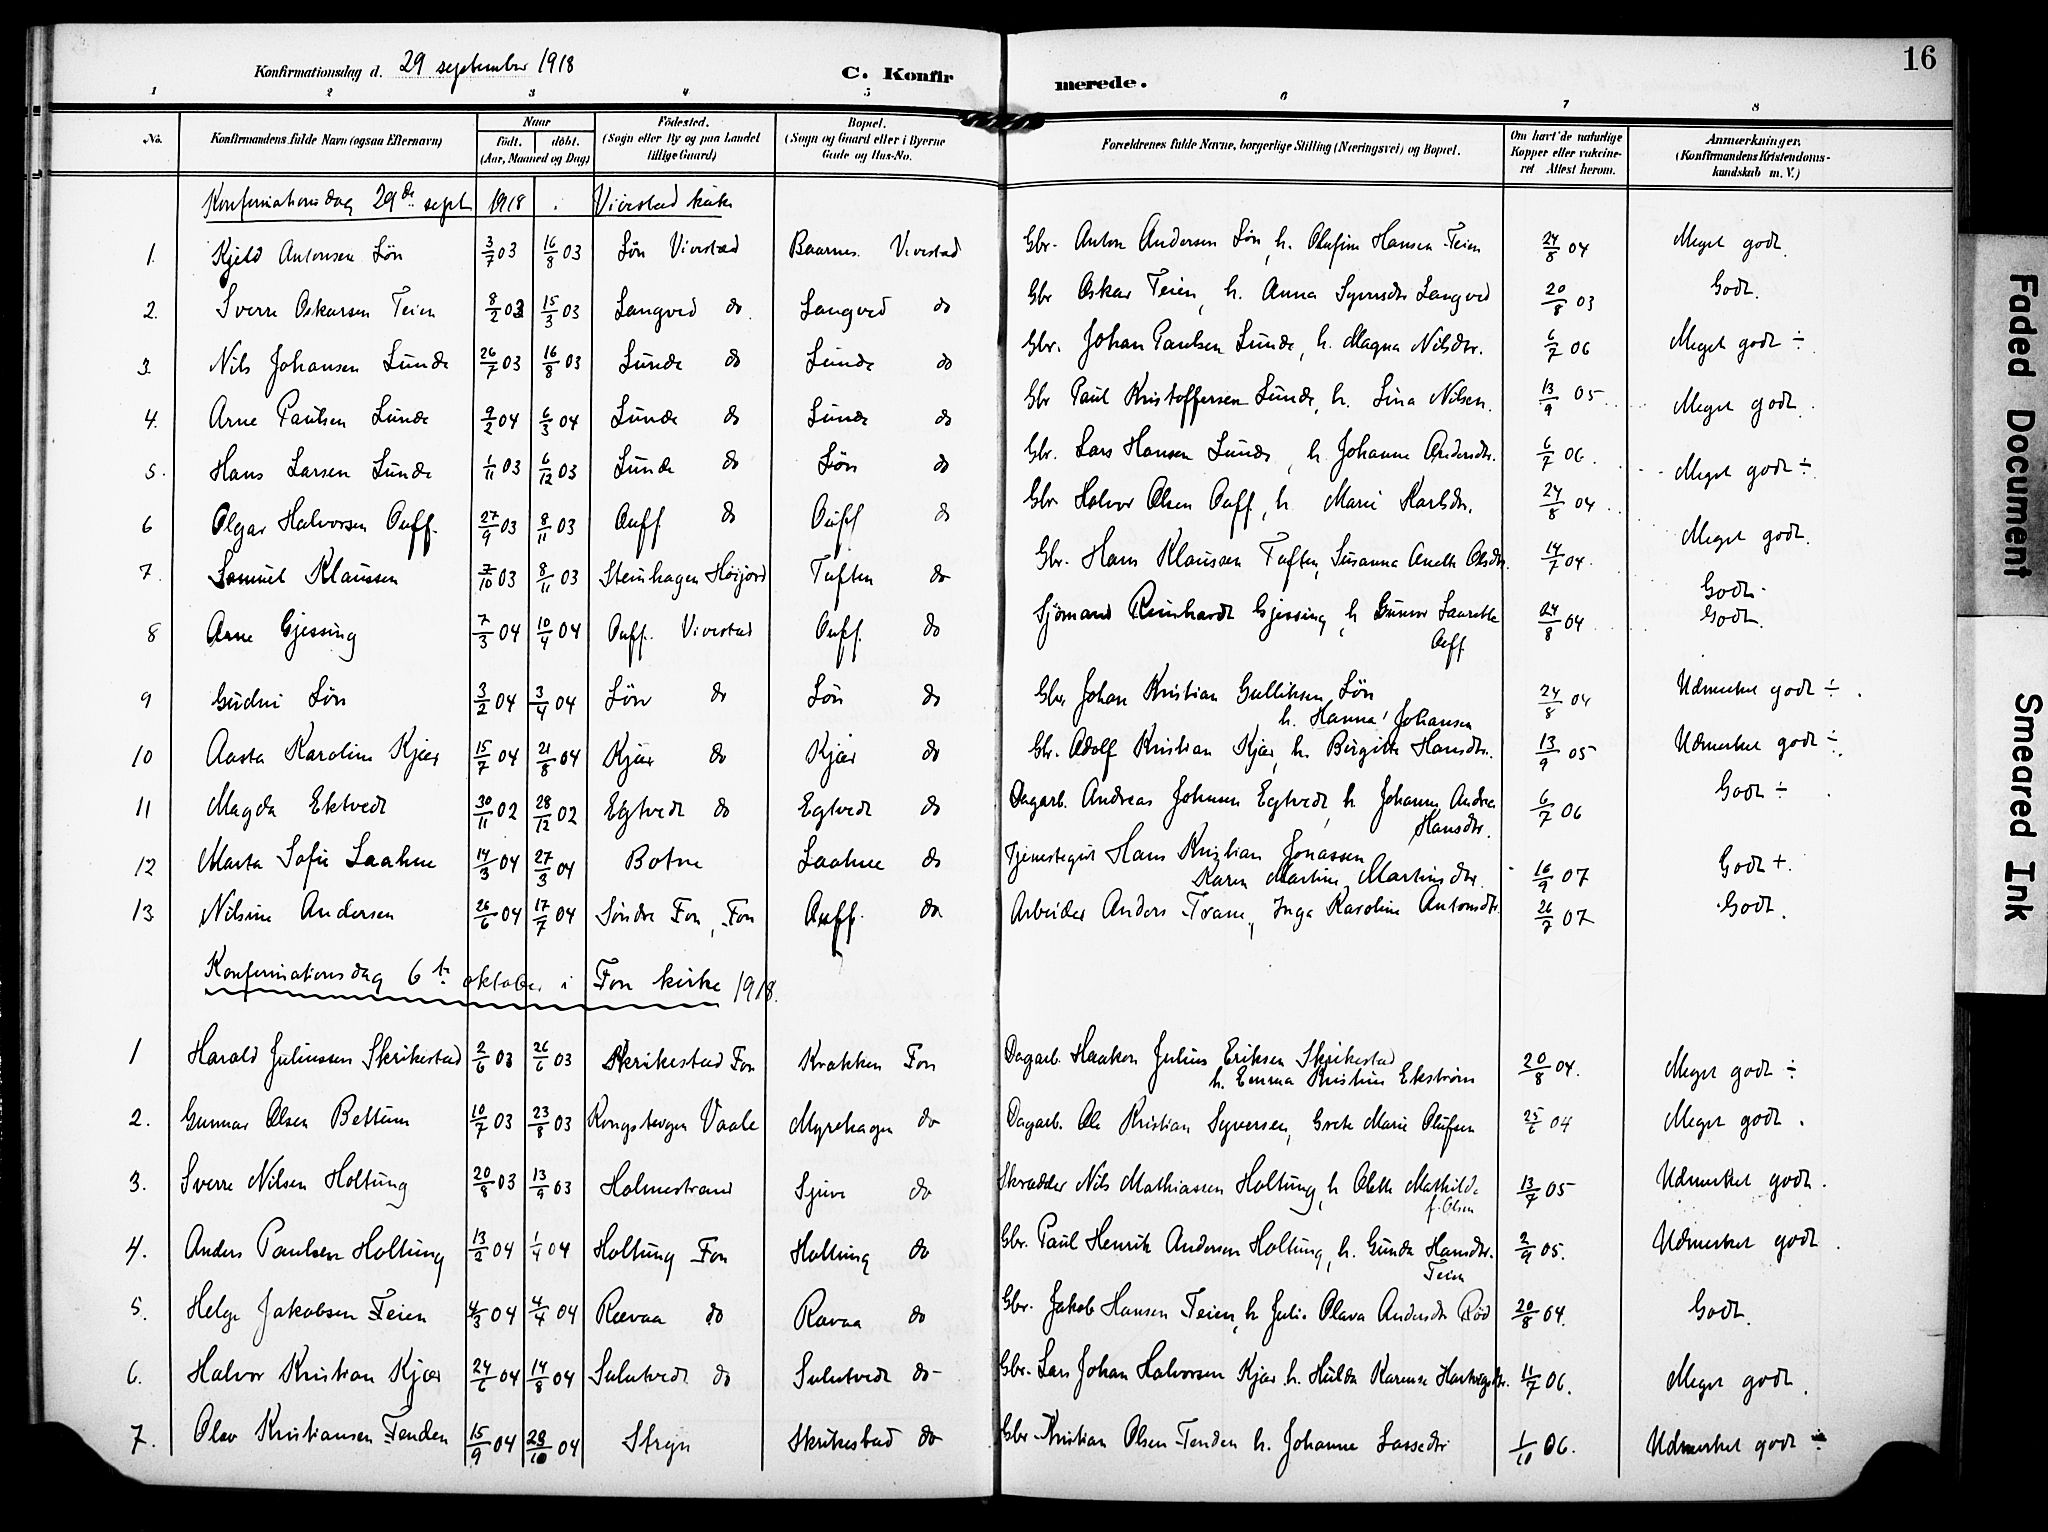 Konfirmationsdag d. 29 september 1918
C. Konfir merede. 16
1 2 3 4 5 6 7 8
No. Konfirmandens fulde Navn (ogsaa Efternavn) Naar født. døbt. (Aar, Maaned og Dag) Fødested. (Sogn eller By og paa Landet tillige Gaard) Bopæl. (Sogn og Gaard eller i Byerne Gade og Hus-No. Forældrenes fulde Navne, borgerlige Stilling (Næringsvei) og Bopæl. Om havt de naturlige Kopper eller vakcineret Attest herom. Anmærkninger. (Konfirmandens Kristendomskundskab m. V.)
Konfirmationsdag 29de sept 1918 i Vivestad kirke
1. Kjeld Antonsen Lön 3/7 03 16/8 03 Lön Vivestad Baarnes Vivestad Gbr. Anton Andersen Lön, h. Olufine Hansen Teien 24/8 04 Meget godt.
2. Sverre Oskarsen Teien 8/2 03 15/3 03 Langved do. Langved do Gbr Oskar Teien, h. Anna Syversdtr Langved 20/8 03 Godt.
3. Nils Johansen Lunde 26/7 03 16/8 03 Lunde do Lunde do Gbr. Johan Paulsen Lunde, h. Magna Nilsdtr. 6/7 06 Meget godt ÷
4. Arne Paulsen Lunde 9/2 04 6/3 04 Lunde do Lunde do Gbr Paul Kristoffersen Lunde, h. Lina Nilsen. 13/9 05 Meget godt.
5. Hans Larsen Lunde 1/11 03 6/12 03 Lunde do Lön do Gbr. Lars Hansen Lunde, h. Johanne Andersdtr. 6/7 06. Meget godt ÷
6 Olgar Halvorsen Auff. 27/9 03 8/11 03 Auff do Auff do Gbr Halvor Olsen Auff, h Marie Karlsdtr. 24/8 04 Meget godt.
7. Samuel Klaussen 7/10 03 8/11 03 Steinhagen Höijord Tuften do Gbr. Hans Klaussen Tuften, Susanna Aneth Olsdtr. 14/7 04. Godt.
8 Arne Gjessing 7/3 04 10/4 04 Auff. Vivestad Auff. do Sjömand Reinhardt Gjessing, h Gunvor Laurette Auff 24/8 04 Godt.
9 Gudni Lön 3/2 04 3/4 04 Lön do Lön do Gbr. Johan Kristian Gulliksen Lön h. Hanna Johansen 24/8 04 Udmerket godt ÷.
10 Aasta Karoline Kjær 15/7 04 21/8 04 Kjær do Kjær do Gbr. Adolf Kristian Kjær, h. Birgitte Hansdtr. 13/9 05 Udmerket godt ÷
11 Magda Ektvedt 30/11 02 28/12 02 Egtvedt do Egtvedt do Dagarb. Andreas Johnsen Egtvedt, h Johanne Andrea Hansdtr. 6/7 06 Godt ÷
12 Marta Sofie Laahne 14/3 04 27/3 04 Botne Laahne do Tjenestegut Hans Kristian Jonassen Karen Martine Martinsdtr. 16/9 07 Godt +.
13 Nilsine Andersen 26/6 04 17/7 04 Söndre Fon, Fon Auff. do Arbeider Anders Trane, Inga Karoline Antonsdtr. 26/7 07 Godt.
Konfirmationsdag 6te oktober i Fon kirke 1918.
1 Harald Juliussen Skrikestad 2/6 03 26/6 03 Skrikestad Fon Krakken Fon Dagarb. Haakon Julius Eriksen Skrikestad h. Emma Kristine Ekström 20/8 04. Meget godt ÷
2. Gunnar Olsen Bettum 10/7 03 23/8 03 Kongsteigen Vaale Myrehagen do Dagarb. Ole Kristian Syversen, Grete Marie Olufsen 25/6 04 Meget godt.
3. Sverre Nilsen Holtung 20/8 03 13/9 03 Holmestrand Sjuve do Skrædder Nils Mathiassen Holtung, h Oleth Mathilde f. Olsen 13/7 05 Udmerket godt.
4. Anders Paulsen Holtung 13/2 04 1/4 04 Holtung Fon Holtung do Gbr. Paul Henrik Andersen Holtung, h. Gunda Hansdtr. Teien 2/9 05. Udmerket godt.
5. Helge Jakobsen Teien 4/3 04 4/4 04 Rævaa do Rævaa do Gbr. Jakob Hansen Teien, h Julie Olava Andersdtr Röd 20/8 04. Godt.
6. Halvor Kristian Kjær 24/6 04 14/8 04 Sulutvedt do Sulutvedt do Gbr. Lars Johan Halvorsen Kjær h. Hulda Karense Hartvigsdtr. 11/7 06. Meget godt.
7. Olav Kristiansen Tenden 15/9 04 23/10 04 Stryn Skrikestad do Gbr Kristian Olsen Tenden h. Johanne Lassedtr 1/10 06. Udmerket godt ÷
Faded Document
Smeared Ink